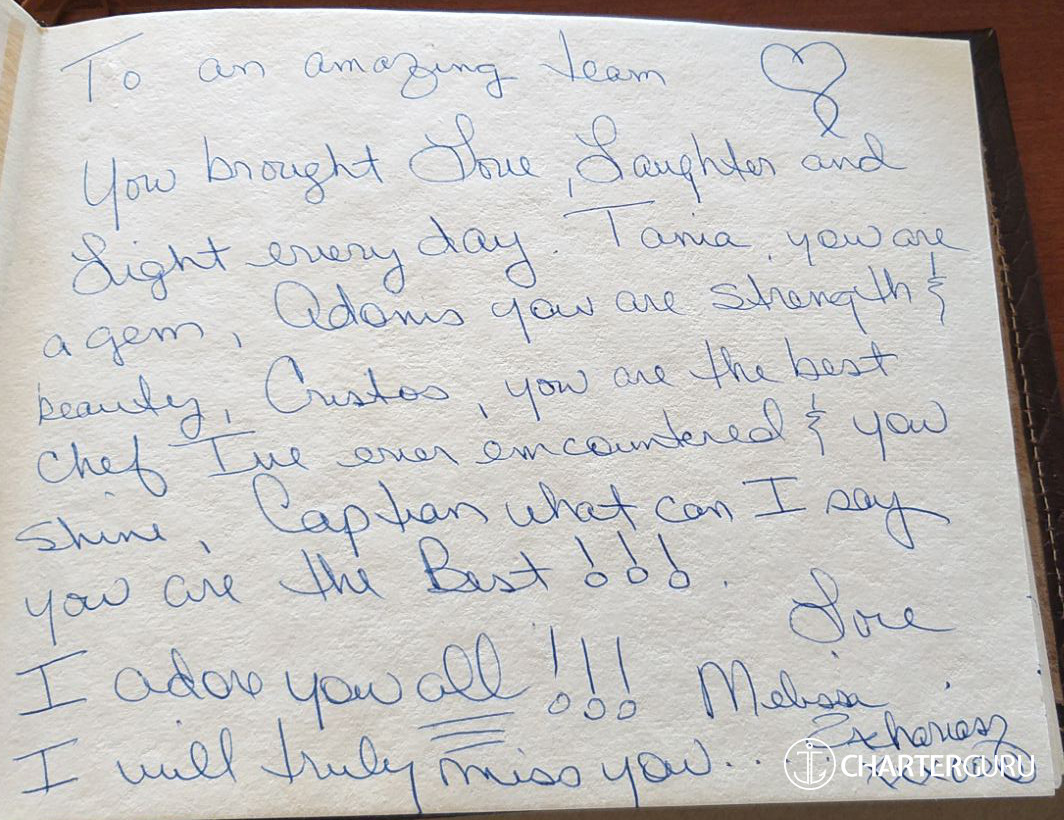 To an amazing team
You brought Love, Laughter and
Light every day. Tania, you are
a gem, Adonis you are strength &
beauty, Cristos, you are the best
chef Ive ever encountered & you
shine, Captian what can I say
you are the Best !!!.
Love
I adore you all !!! Melissa
I will truly miss you...
CHARTERGURU